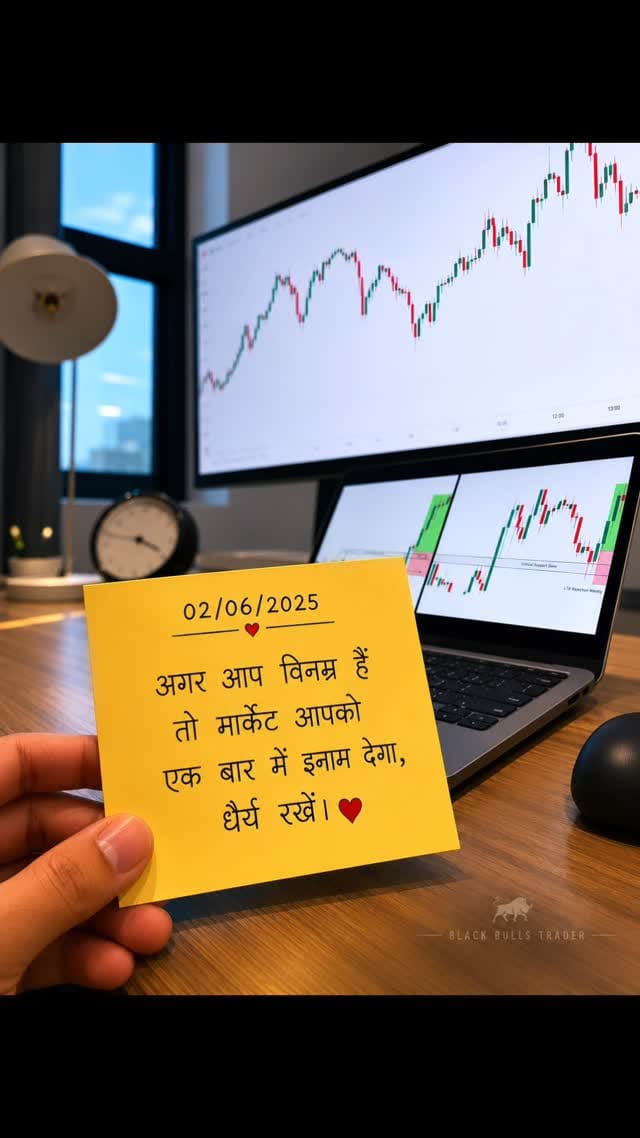 12:00
13:00
Critical Support Zone
LTR Rejection Weekly
02/06/2025
अगर आप विनम्र हैं
तो मार्केट आपको
एक बार में इनाम देगा,
धैर्य रखें।
BLACK BULLS TRADER